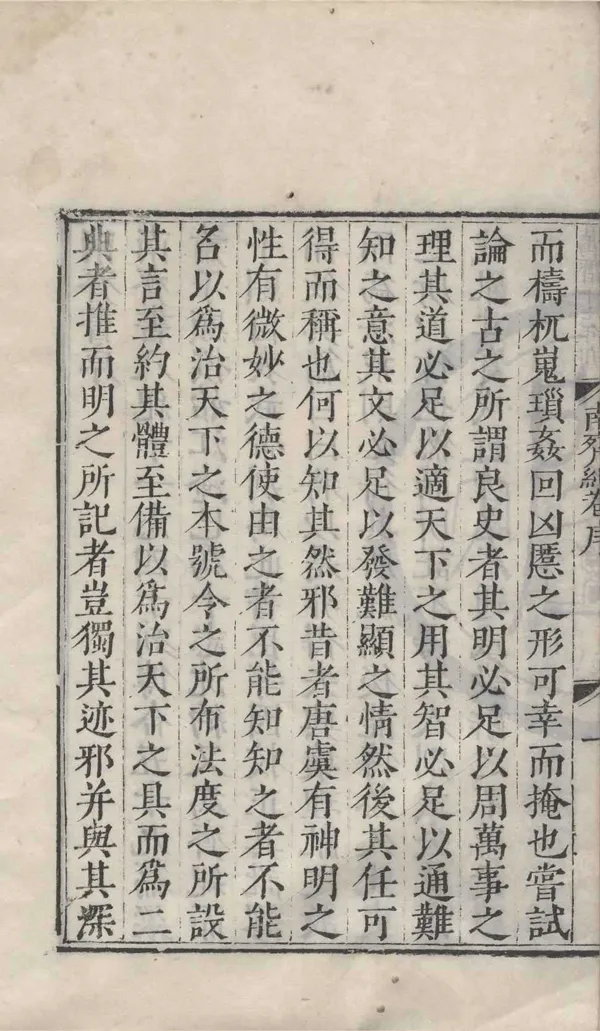 南齊總卷序
一
而檮杌嵬瑣姦回凶慝之形可幸而掩也嘗試
論之古之所謂良史者其明必足以周萬事之
理其道必足以適天下之用其智必足以通難
知之意其文必足以發難顯之情然後其任可
得而稱也何以知其然邪昔者唐虞有神明之
性有微妙之德使由之者不能知知之者不能
名以爲治天下之本號令之所布法度之所設
其言至約其體至備以爲治天下之具而爲二
典者推而明之所記者豈獨其迹邪并與其深